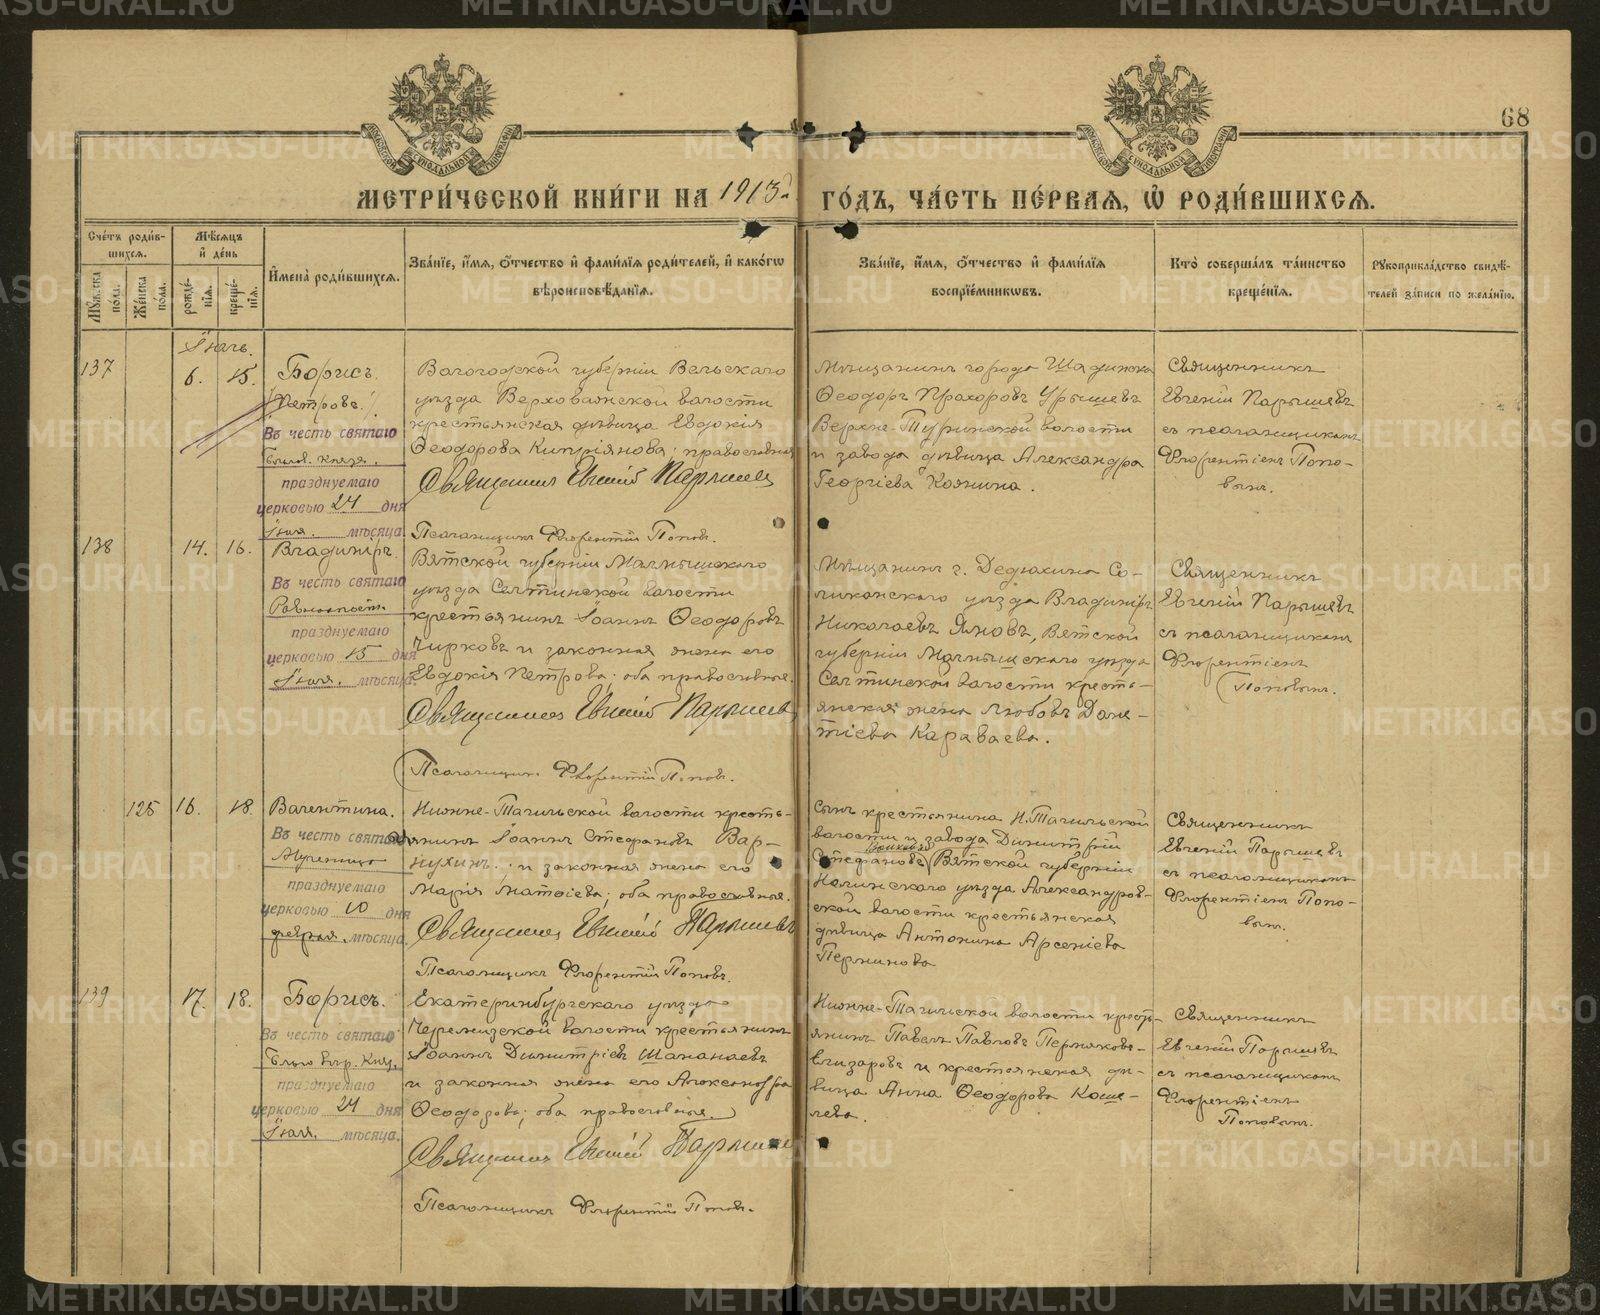 68
МЕТРИ́ЧЕСКОЙ КНИ́ГИ НА 1913 ГО́ДЪ, ЧА́СТЬ ПЕ́РВАЯ, Ѡ҆ РОДИ́ВШИХСЯ.
Сче́тъ роди́вшихся.
Му́жеска по́ла.
Же́нска по́ла.
Мѣ́сяцъ и҆ де́нь
рожде́нїя.
креще́нїя.
И҆мена̀ роди́вшихся.
Зва́нїе, и҆́мя, ѻ҆́тчество и҆ фами́лїя роди́телей, и҆ како́гѡ
вѣроисповѣ́данїя.
Зва́нїе, и҆́мя, ѻ҆́тчество и҆ фами́лїя
воспрїе́мникѡвъ.
Кто̀ соверша́лъ та́инство
креще́нїя.
Рꙋкоприкла́дство свидѣ́-
телей за́писи по жела́нїю.
Іюль.
137
6. 15.
Борисъ.
(Петровъ.)
Въ честь святаго
Благов. Князя.
празднуемаго
церковью 24 дня
Іюля. мѣсяца.
Вологодской губерніи Вельскаго
уѣзда Верховажской волости
крестьянская дѣвица Евдокія
Ѳеодорова Кипріянова; православная
Священникъ Евгеній Парышевъ
Псаломщикъ Флорентій Поповъ.
Мѣщанинъ города Шадринска
Ѳеодоръ Прохоровъ Урышевъ
Верхне-Туринской волости
и завода дѣвица Александра
Георгіева Кожина.
Священникъ
Евгеній Парышевъ
съ псаломщикомъ
Флорентіемъ Попо-
вымъ.
138
14. 16.
Владиміръ.
Въ честь святаго
Равноапост.
празднуемаго
церковью 15 дня
Іюля. мѣсяца.
Вятской губерніи Малмыжскаго
уѣзда Селтинской волости
крестьянинъ Іоаннъ Ѳеодоровъ
Чирковъ и законная жена его
Евдокія Петрова; оба православные.
Священникъ Евгеній Парышевъ
Псаломщикъ Флорентій Поповъ.
Мѣщанинъ г. Дедюхина Со-
ликамскаго уѣзда Владиміръ
Николаевъ Яновъ, Вятской
губерніи Малмыжскаго уѣзда
Селтинской волости кресть-
янская жена Любовь
Караваева.
Священникъ
Евгеній Парышевъ
съ псаломщикомъ
Флорентіемъ
Поповымъ.
125
16. 18.
Валентина.
Въ честь святой
Мученицы
празднуемаго
церковью 10 дня
февраля. мѣсяца.
Нижне-Тагильской волости кресть-
янинъ Іоаннъ Стефановъ Вар-
нухинъ; и законная жена его
Марія Матѳіева; оба православные.
Священникъ Евгеній Парышевъ
Псаломщикъ Флорентій Поповъ.
Сынъ крестьянина Н.Тагильской
волости и завода Димитрій
Стефановъ Вятской губерніи
Нолинскаго уѣзда Александров-
ской волости крестьянская
дѣвица Антонина Арсеніева
Перминова
Священникъ
Евгеній Парышевъ
съ псаломщикомъ
Флорентіемъ Попо-
вымъ.
139
17. 18.
Борисъ.
Въ честь святаго
Благо вѣр. Княз.
празднуемаго
церковью 24 дня
Іюля. мѣсяца.
Екатеринбургскаго уѣзда
волости крестьянинъ
Іоаннъ Димитріевъ Шаманаевъ
и законная жена его Александра
Ѳеодорова; оба православные.
Священникъ Евгеній Парышевъ
Псаломщикъ Флорентій Поповъ.
Нижне-Тагильской волости кресть-
янинъ Павелъ Павловъ Перняковъ-
Елизаровъ и крестьянская дѣ-
вица Анна Ѳеодорова Коше-
лева.
Священникъ
Евгеній Парышевъ
съ псаломщикомъ
Флорентіемъ
Поповымъ.
METRIKI.GASO-URAL.RU